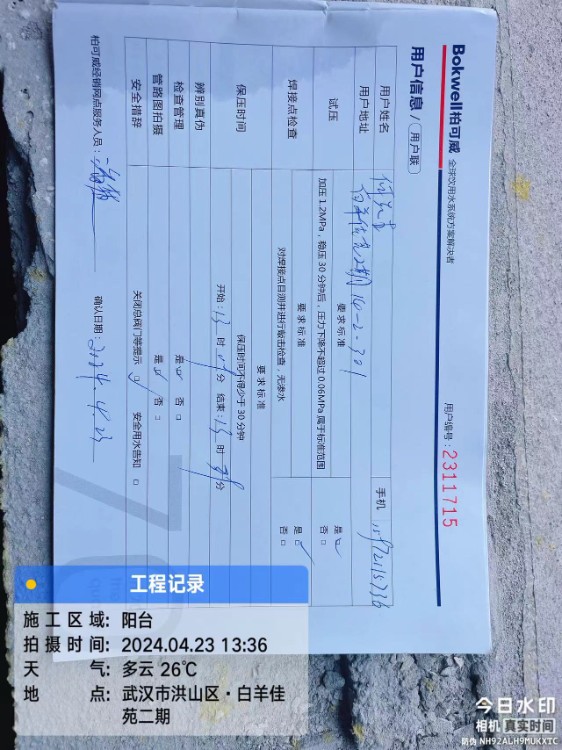 Bokwell柏可威 全球饮用水系统方案解决者
用户信息/用户联
用户编号：2311715
用户姓名
手机
用户地址 14-2-301
要求标准
试压 加压1.2MPa，稳压30分钟后，压力下降不超过0.06MPa属于标准范围 是☑ 否□
要求标准
焊接点检查 对焊接点目测并进行敲击检查，无渗水 是□ 否□
要求标准
保压时间 保压时间不得少于30分钟
开始：13时 分 结束：13时 分
辨别真伪
检查管理 是☑ 否□
管路图拍摄 是☑ 否□
安全措辞 关闭总阀门等提示☑ 安全用水告知□
柏可威经销网点服务人员：
确认日期：2024.4.23
工程记录
施工区域：阳台
拍摄时间：2024.04.23 13:36
天气：多云 26℃
地点：武汉市洪山区·白羊佳
苑二期
今日水印
相机 真实时间
防伪 NH92ALH9MUKXTC